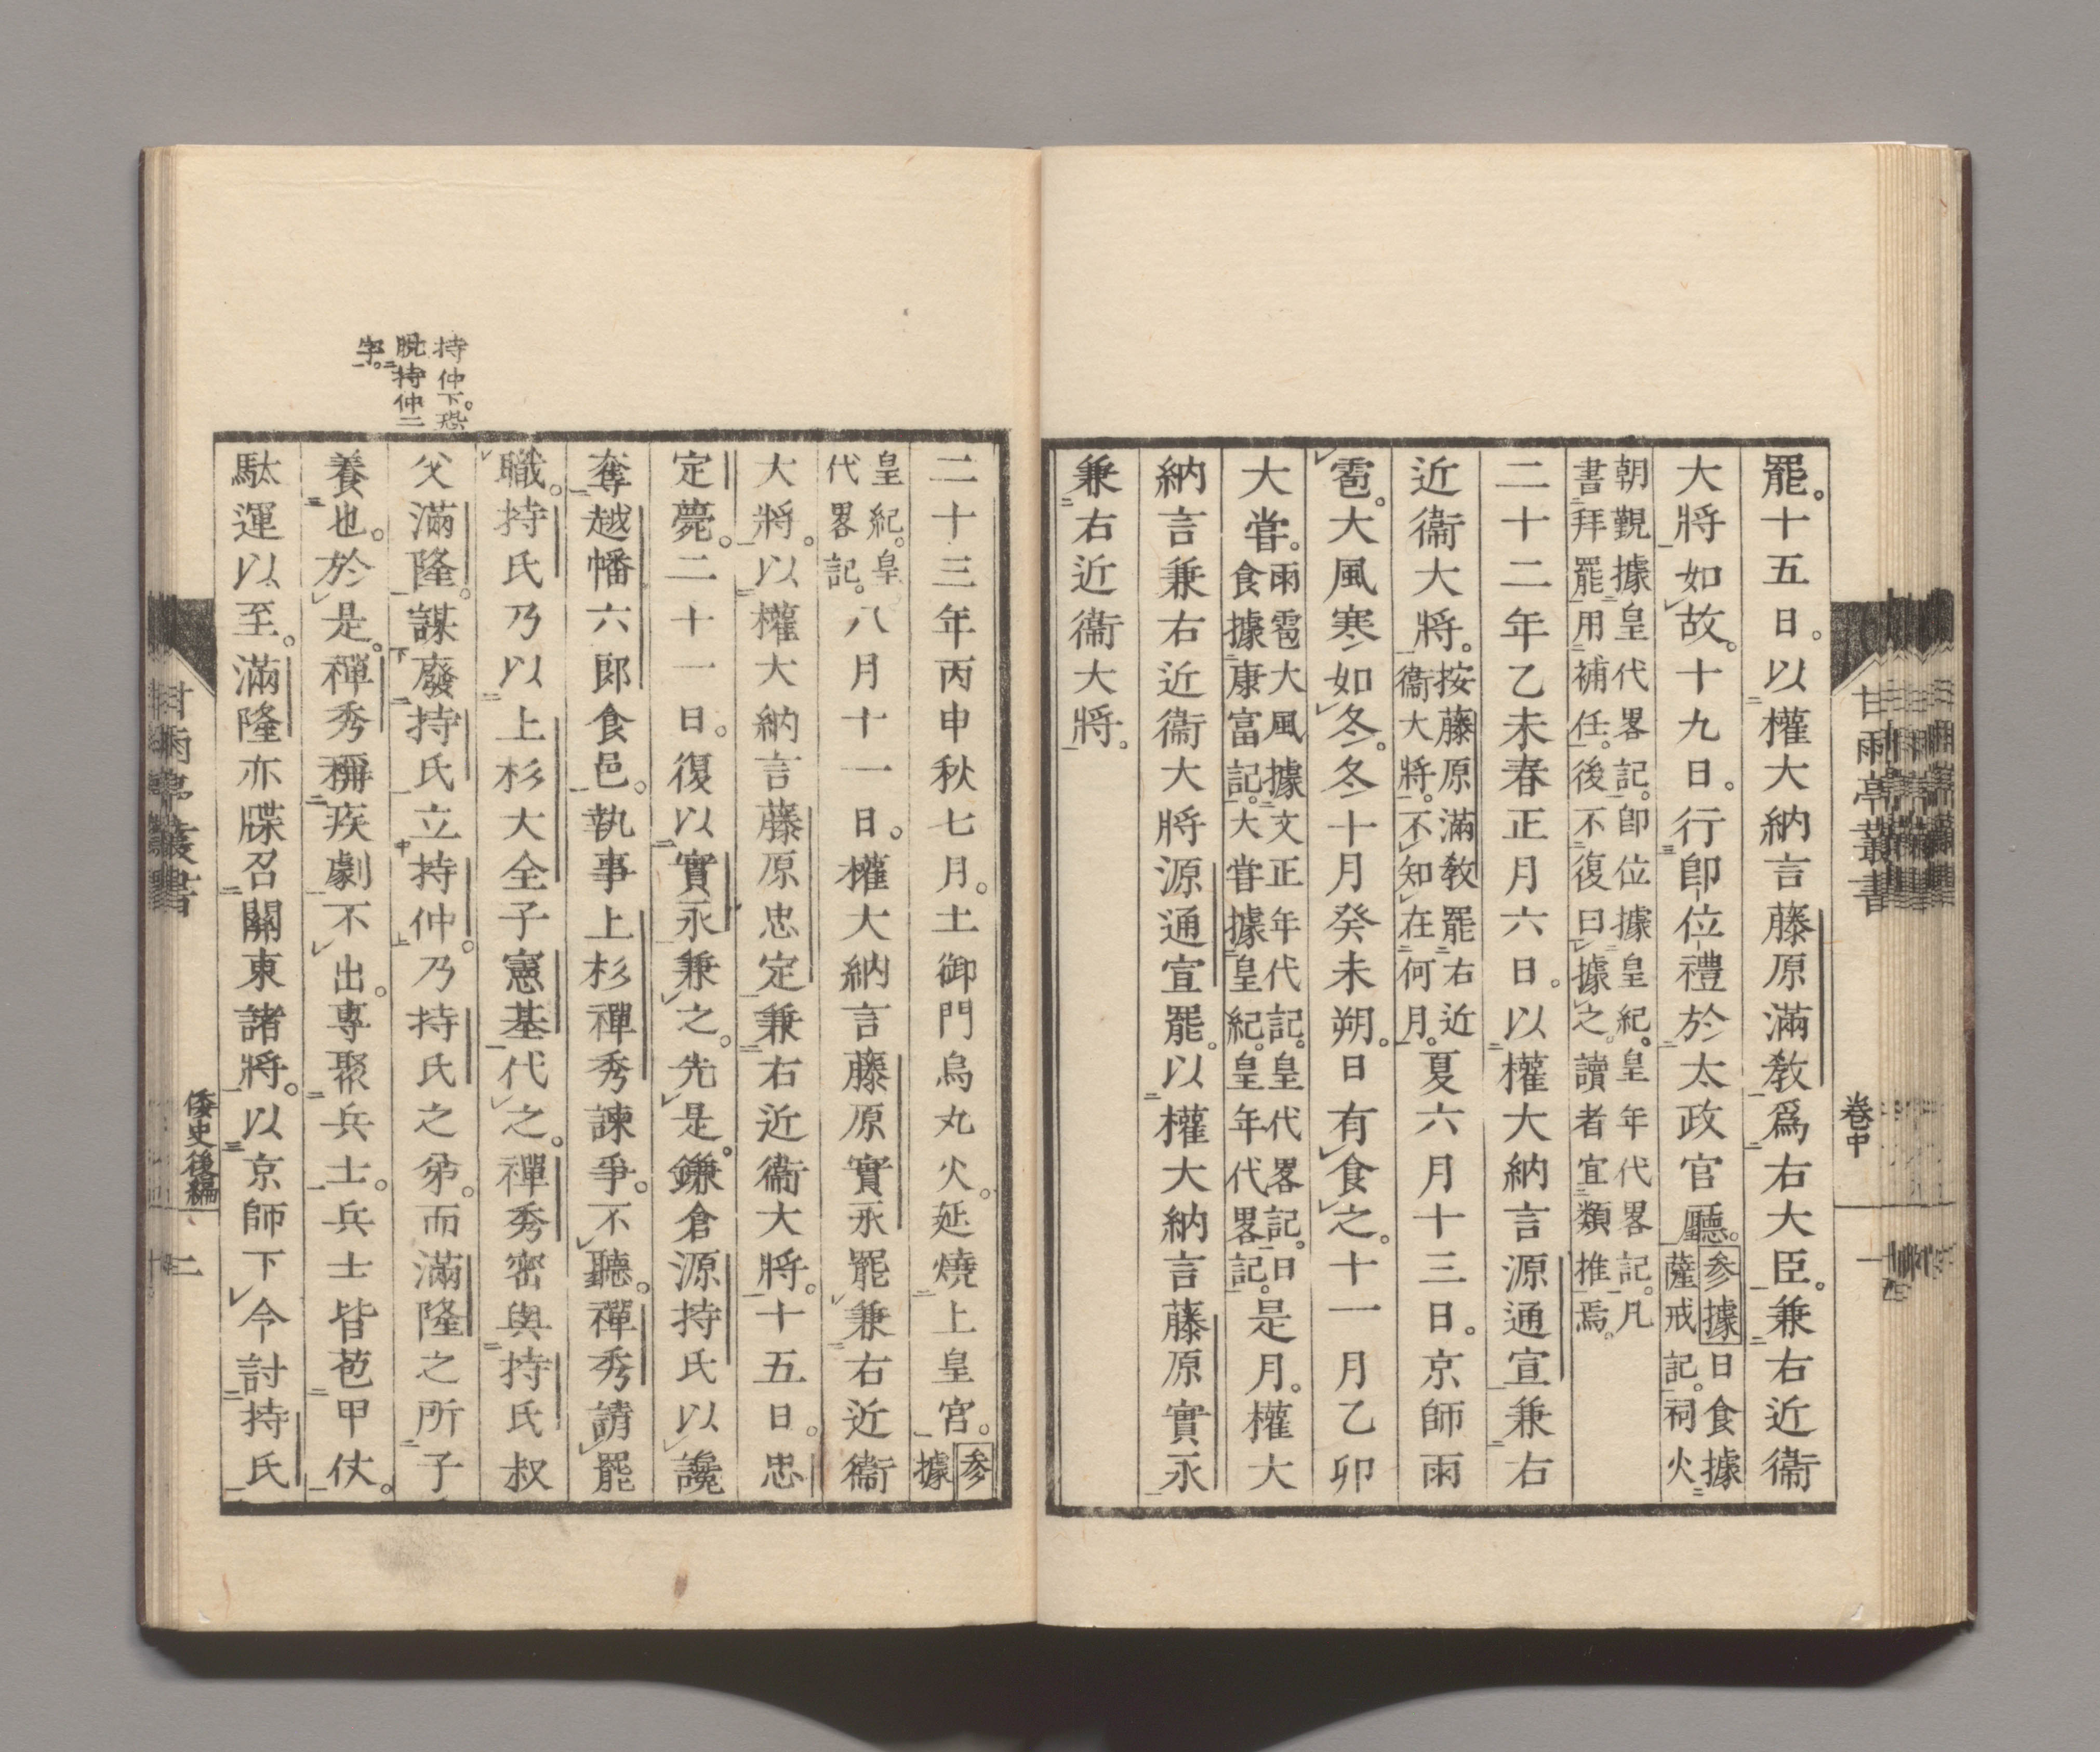 罷。十五日。以權大納言藤原滿教爲右大臣。兼右近衞
大將如故。十九日。行卽位禮於太政官廳。参據日食據薩戒記。祠火
朝覲據皇代畧記。卽位據皇紀。皇年代畧記。凡
書拜罷用補任。後不復曰據之。讀者宜類推焉。
二十二年乙未春正月六日。以權大納言源通宣兼右
近衞大將。按藤原滿教罷右近衞大將。不知在何月。夏六月十三日。京師雨
雹。大風寒如冬。冬十月癸未朔。日有食之。十一月乙卯
大甞。雨雹大風據文正年代記。皇代畧記。日食據康富記。大甞據皇紀。皇年代畧記。是月。權大
納言兼右近衞大將源通宣罷。以權大納言藤原實永
兼右近衞大將。
甘雨亭叢書
卷中
一
二十三年丙申秋七月。土御門烏丸火。延燒上皇宮。参據
皇紀。皇代畧記。八月十一日。權大納言藤原實永罷兼右近衞
大將。以權大納言藤原忠定兼右近衞大將。十五日。忠
定薨。二十一日。復以實永兼之。先是。鎌倉源持氏以讒
奪越幡六郎食邑。執事上杉禪秀諫爭。不聽。禪秀請罷
職。持氏乃以上杉大全子憲基代之。禪秀密與持氏叔
父滿隆。謀廢持氏立持仲。乃持氏之弟。而滿隆之所子
養也。於是。禪秀稱疾劇不出。專聚兵士。兵士皆苞甲仗。
駄運以至。滿隆亦牒召關東諸將。以京師下令討持氏
持仲下。恐
脫持仲二
字。
甘雨亭叢書
倭史後編
二